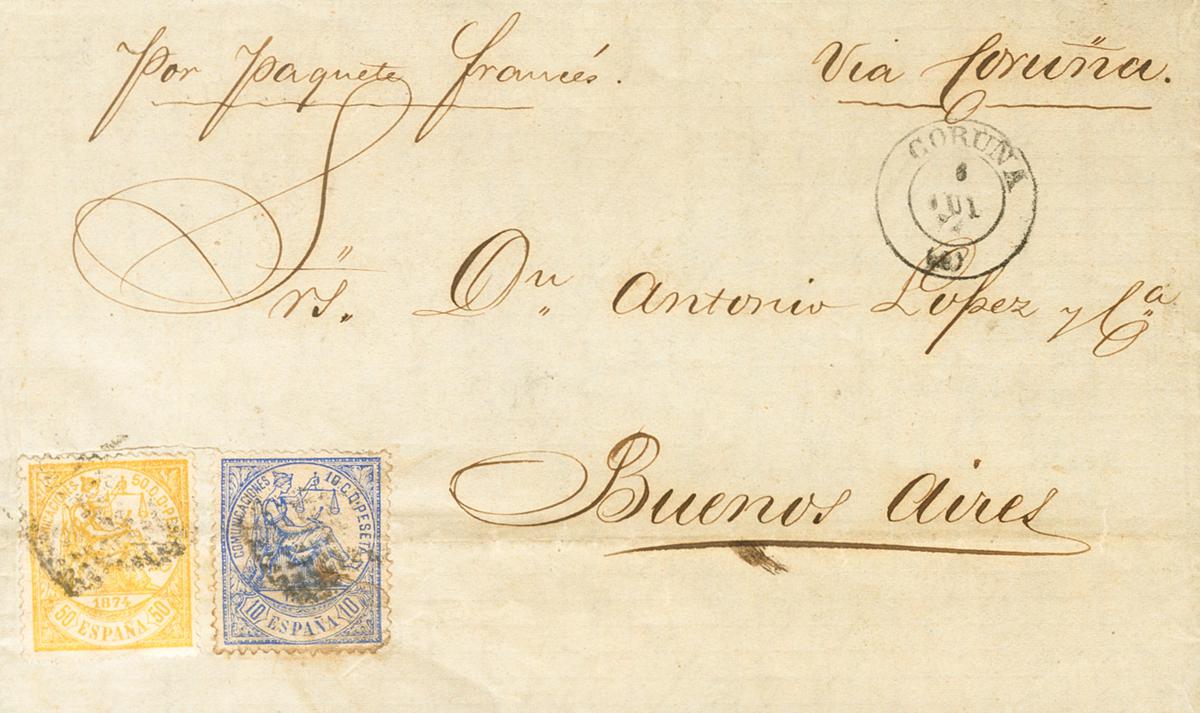 Por Paquete francés. Via Coruña.
CORUÑA
6
JUL
Srs. Dn Antonio Lopez y Ca
Buenos Aires
50 C. D PESETA
1874
50 ESPAÑA 50
COMUNICACIONES 10 C. D PESETA
10 ESPAÑA 10